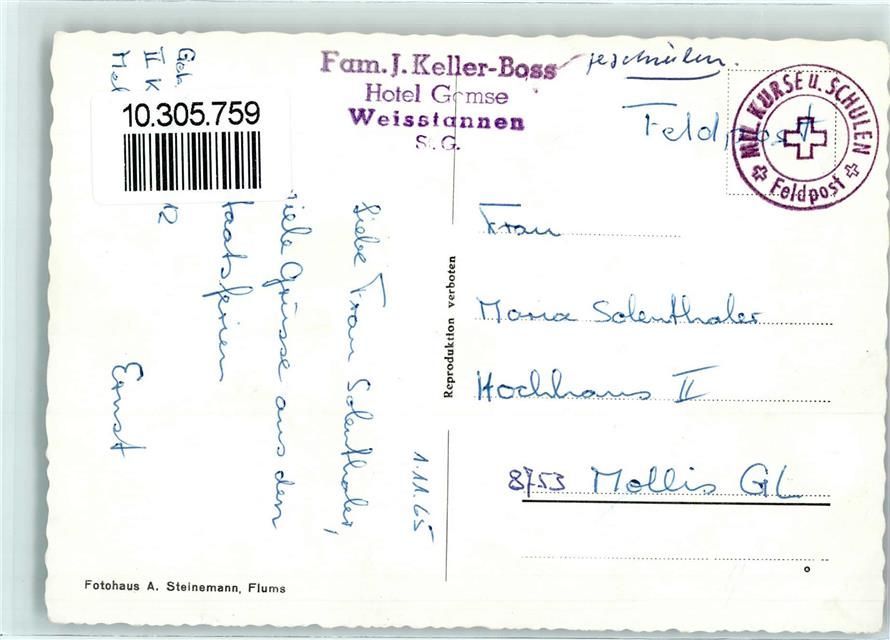 Fam. J. Keller-Boss
Hotel Gemse
Weisstannen
S. G.
Feldpost
MIL. KURSE u. SCHULEN
Feldpost
10.305.759
1.11.65
Liebe Frau Solenthaler,
viele Grüsse aus den
Staatsferien
Ernst
Geb.
II
12
Reproduktion verboten
Frau
Maria Solenthaler
Hochhaus II
8753 Mollis GL
Fotohaus A. Steinemann, Flums